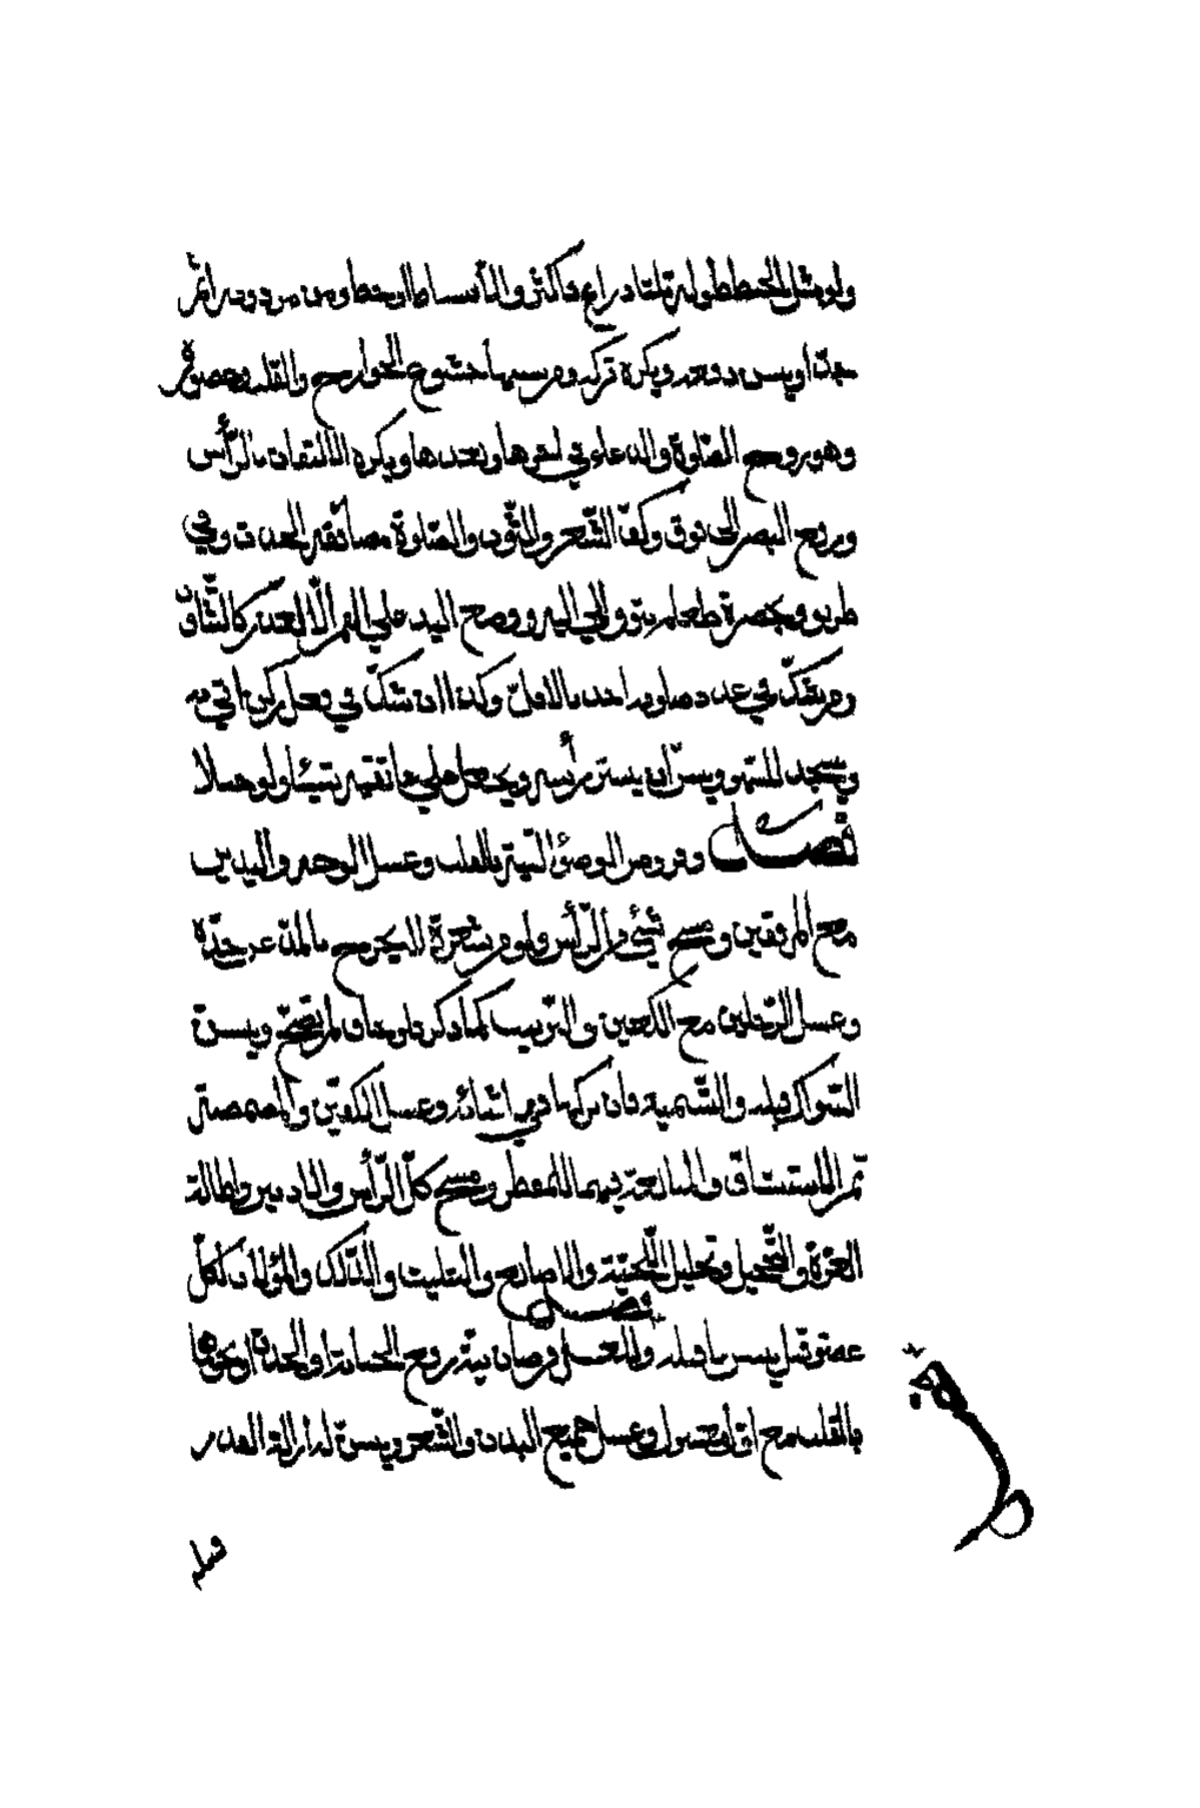 ولو مثل الخط طوله ثلثا ذراع فاكثر والا بساطا او خطا ومن مر دونه اثم
جدا ويسن دفعه ويكره تركه ومن سننها خشوع الجوارح والقلب وحضوره
وهو روح الصلوة والدعاء في اخرها وبعدها ويكره الالتفات بالرأس
ورفع البصر الى فوق وكف الشعر والثوب والصلوة مدافعة الحدث وفي
طريق وبحضرة طعام يتوق اليه ووضع اليد على الفم الا لعذر كالتثاؤب
ومن شك في عدد صلوته اخذ بالاقل وكذا ان شك في فعل ركن اتى به
ويسجد للسهو ويسن ان يستر رأسه ويجعل على عاتقيه شيئا ولو حبلا
فصل وفروض الوضوء النية بالقلب وغسل الوجه واليدين
مع المرفقين ومسح شيء من الرأس ولو من شعرة لا يخرج بالمد عن حده
وغسل الرجلين مع الكعبين والترتيب كما ذكرنا وخلافه لم يصح ويسن
السواك قبله والتسمية فان تركها ففي اثنائه وغسل الكفين والمضمضة
ثم الاستنشاق والمبالغة فيهما للمفطر ومسح كل الرأس والاذنين واطالة
الغرة والتحجيل وتخليل اللحية والاصابع والتثليث والدلك والولاء لكل
عضو قبل يبس ما قبله فصل والغسل فرضان نية رفع الجنابة او الحدث او نحوها
بالقلب مع اول مغسول وغسل جميع البدن والشعر ويسن له ازالة القذر
قبله